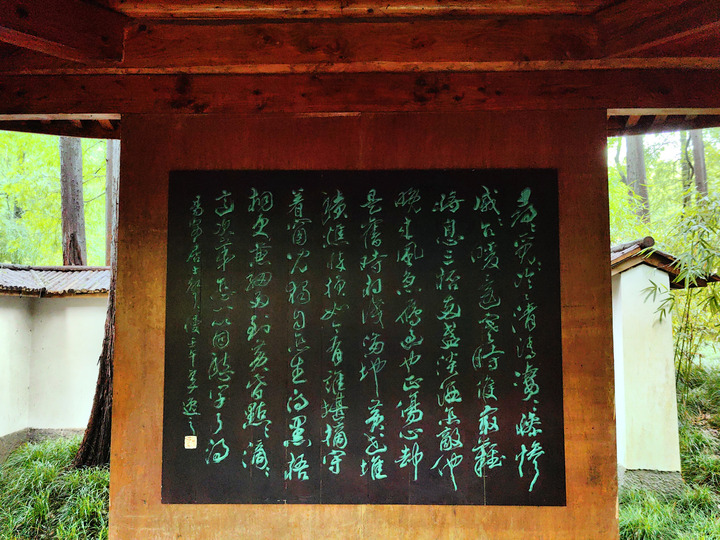 尋尋覓覓冷冷清清淒淒慘慘
戚戚乍暖還寒時候最難
將息三杯兩盞淡酒怎敵他
晚來風急雁過也正傷心卻
是舊時相識滿地黃花堆
積憔悴損如今有誰堪摘守
着窗兒獨自怎生得黑梧
桐更兼細雨到黃昏點點滴滴
這次第怎一個愁字了得
易安居士聲聲慢